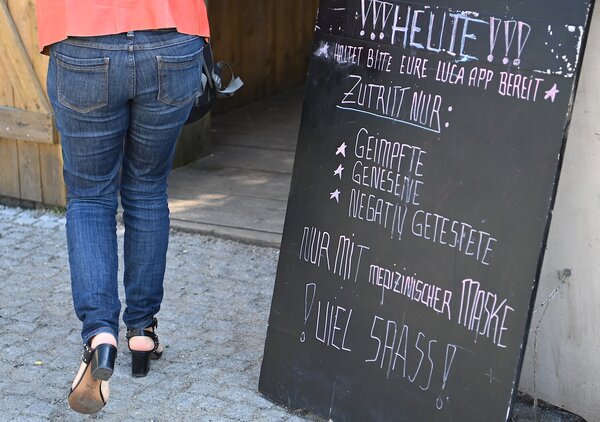 !!! HEUTE !!!
HALTET BITTE EURE LUCA APP BEREIT
ZUTRITT NUR:
GEIMPFTE
GENESENE
NEGATIV GETESTETE
NUR MIT MEDIZINISCHER MASKE
! VIEL SPASS !